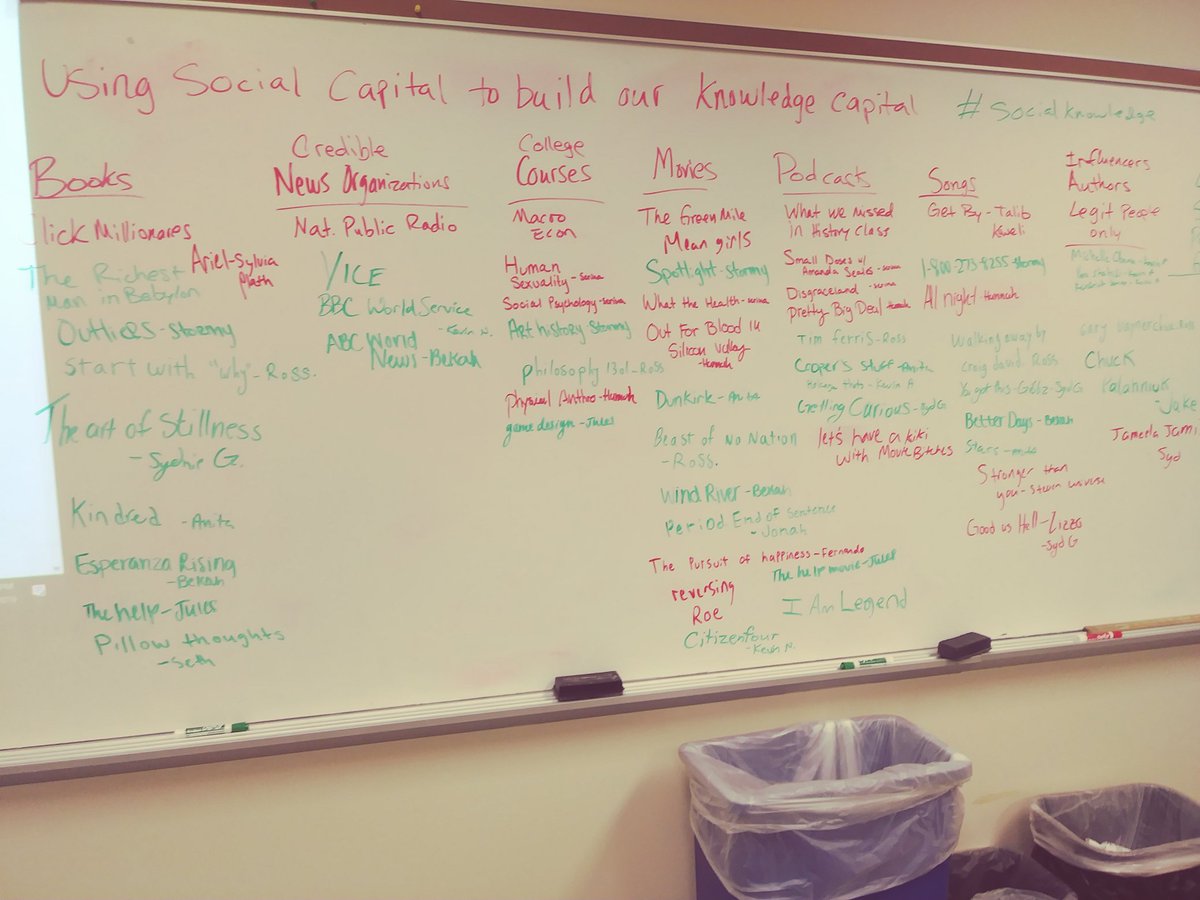 Using Social Capital to build our knowledge capital
#socialknowledge
Books
lick Millionares
Ariel-Sylvia
Plath
The Richest
Man in Babylon
Outliers-Stormy
Start with "why"-Ross.
The art of Stillness
-Sydnie G.
Kindred -Anita
Esperanza Rising
-Bekah
The help-Jules
Pillow thoughts
-Seth
Credible
News Organizations
Nat. Public Radio
VICE
BBC World Service
-Kevin N.
ABC World
News-Bekah
College
Courses
Macro
Econ
Human
Sexuality-Serina
Social Psychology-Serina
Art history Stormy
philosophy 1301-Ross
Physical Anthro-Hannah
game design-Jules
Movies
The Green Mile
Mean girls
Spotlight-Stormy
What the Health-Serina
Out For Blood in
Silicon Valley
-Hannah
Dunkirk-Anita
Beast of No Nation
-Ross.
Wind River-Bekah
Period End of Sentence
-Jonah
The Pursuit of happiness-Fernando
The help movie-Jules
reversing
Roe
I Am Legend
Citizenfour
-Kevin N.
Podcasts
What we missed
in History Class
Small Doses w/
Amanda Seales-Serina
Disgraceland-Serina
Pretty Big Deal Hannah
Tim ferris-Ross
Cooper's Stuff-Anita
-Kevin A
Getting Curious-Syd G
let's have a kiki
with Movie Bitches
Songs
Get By-Talib
Kweli
1-800-273-8255-Stormy
All night-Hannah
Walking away by
Craig david. Ross
You got this-Syd G
Better Days-Bekah
Stars
Stronger than
you-Steven universe
Good as Hell-Lizzo
-Syd G
Influencers
Authors
Legit People
only
Michelle Obama
Gary
Chuck
Palahniuk
-Jake
Jameela Jami
Syd